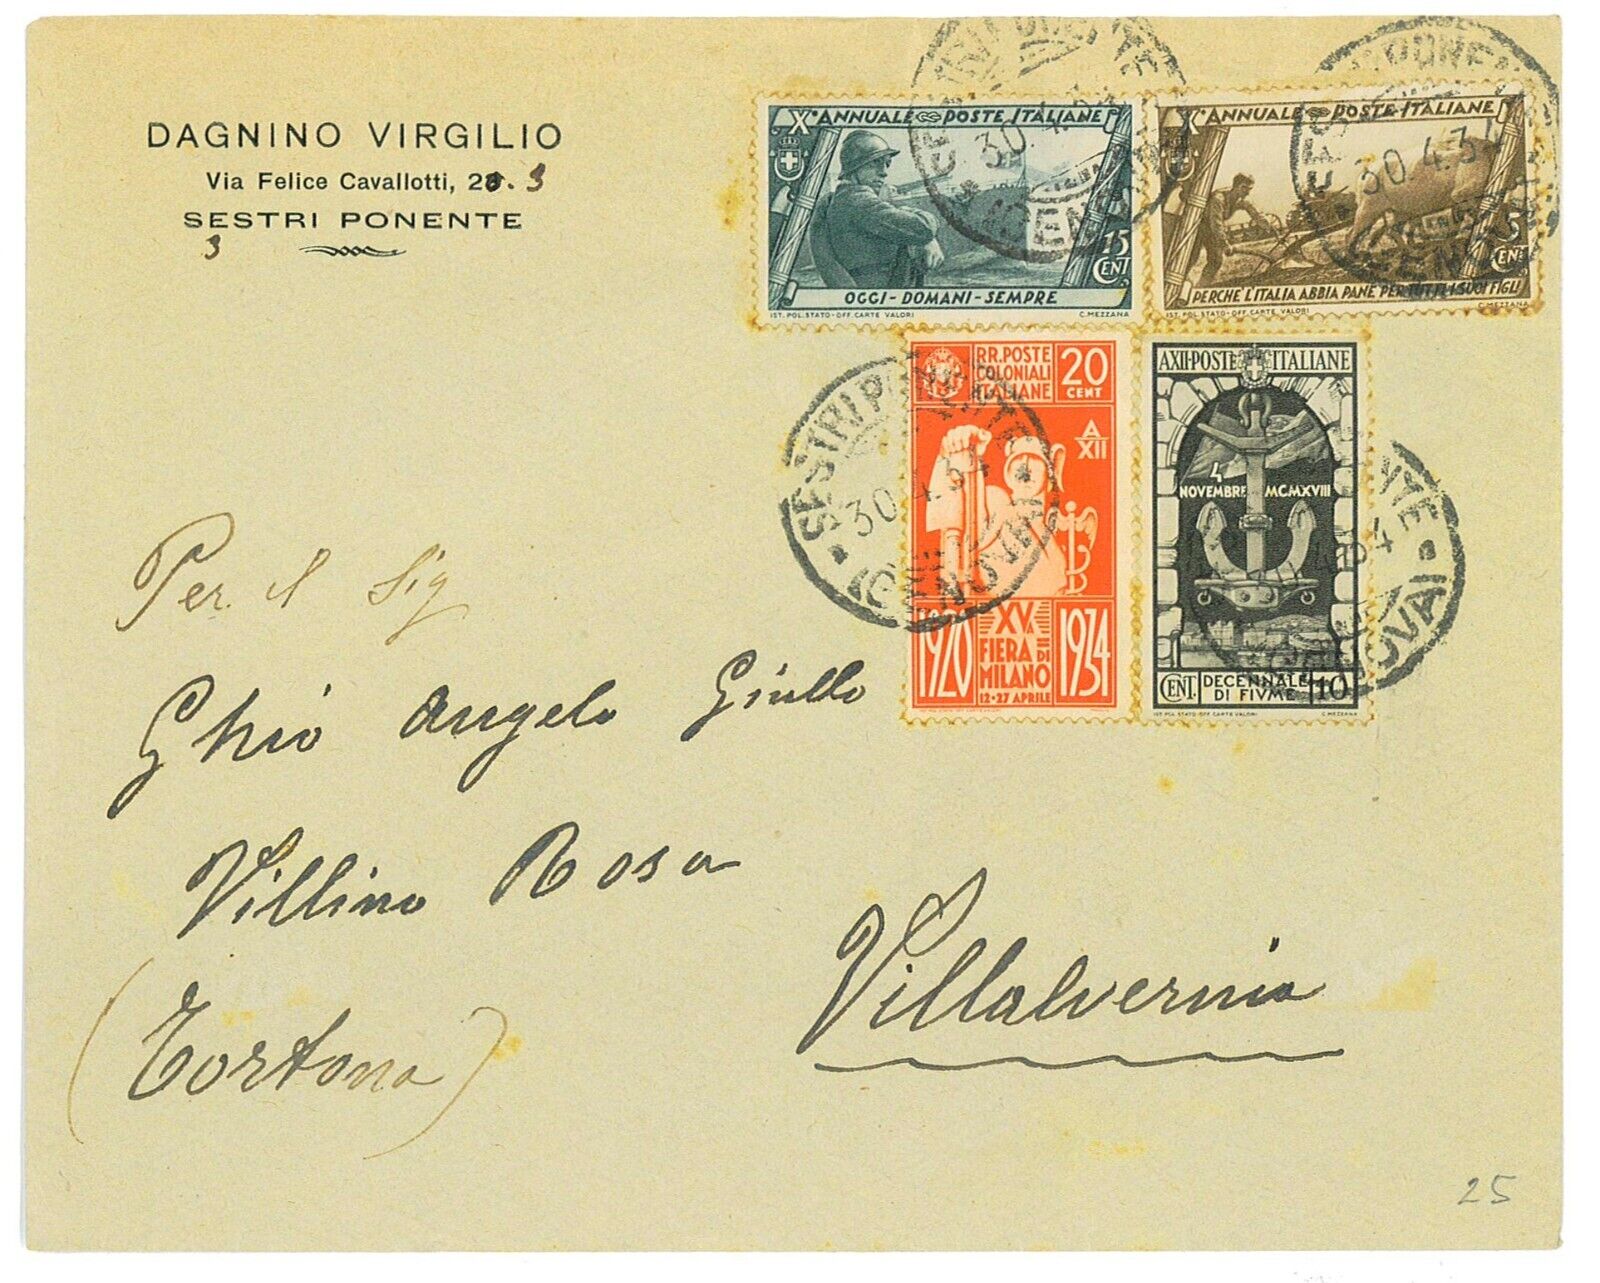 DAGNINO VIRGILIO
Via Felice Cavallotti, 2
3
SESTRI PONENTE
3
X° ANNUALE POSTE ITALIANE
15
CENT
OGGI - DOMANI - SEMPRE
IST. POL. STATO - OFF. CARTE VALORI C. MEZZANA
X° ANNUALE POSTE ITALIANE
5
CENT
PERCHE L'ITALIA ABBIA PANE PER TUTTI I SUOI FIGLI
IST. POL. STATO - OFF. CARTE VALORI C. MEZZANA
30.4.34
(GENOVA)
30.4.34
(GENOVA)
RR. POSTE
COLONIALI
ITALIANE
20
CENT
A
XII
1920
XVA
FIERA DI
MILANO
12-27 APRILE
1934
SESTRI PONENTE
30.4.34
(GENOVA)
A XII - POSTE ITALIANE
4
NOVEMBRE MCMXVIII
CENT. DECENNALE
DI FIVME 10
IST. POL. STATO - OFF. CARTE VALORI C. MEZZANA
(GENOVA)
Per il Sig
Ghio Angelo Giullo
Villino Rosa
Villalvernia
(Tortona)
25